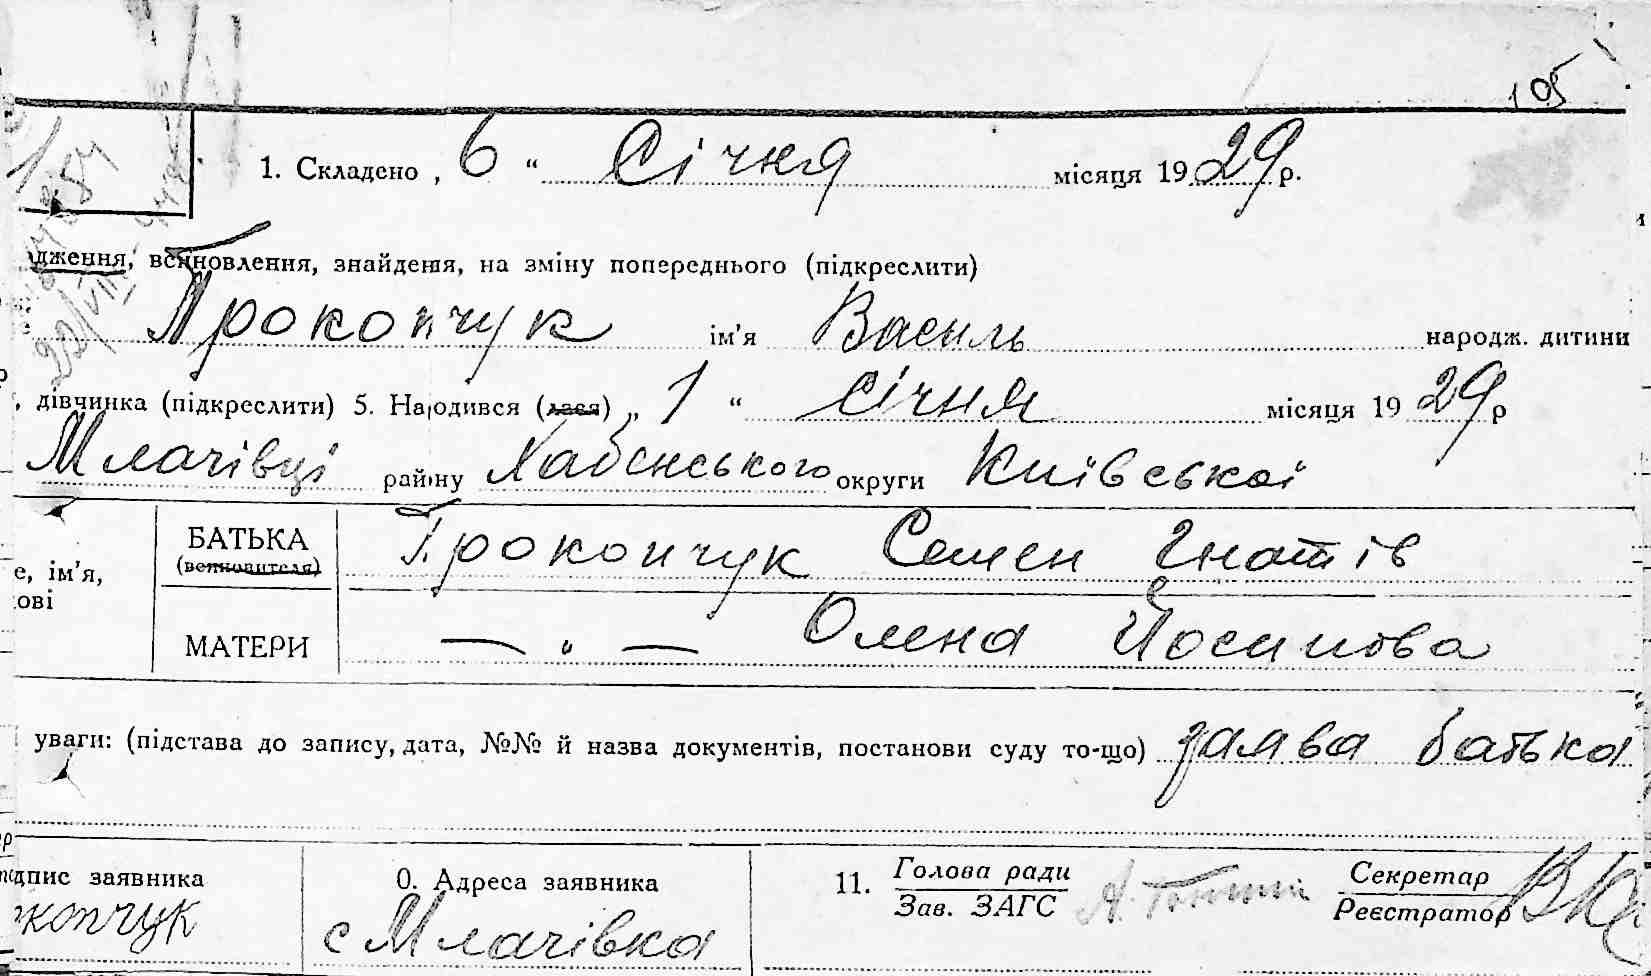 105
1. Складено „ 6 “ Січня місяця 1929 р.
дження, всиновлення, знайдення, на зміну попереднього (підкреслити)
Прокопчук ім’я Василь народж. дитини
, дівчинка (підкреслити) 5. Народився (лася) „ 1 “ січня місяця 1929 р
Млачівці району Хабенського округи Київської
е, ім’я,
ові
БАТЬКА
(всиновителя)
Прокопчук Семен Гнатів
МАТЕРИ — „ — Олена Йосипова
уваги: (підстава до запису, дата, №№ й назва документів, постанови суду то-що) заява батька
підпис заявника
копчук
0. Адреса заявника
с Млачівка
11. Голова ради
Зав. ЗАГС
Секретар
Реєстратор